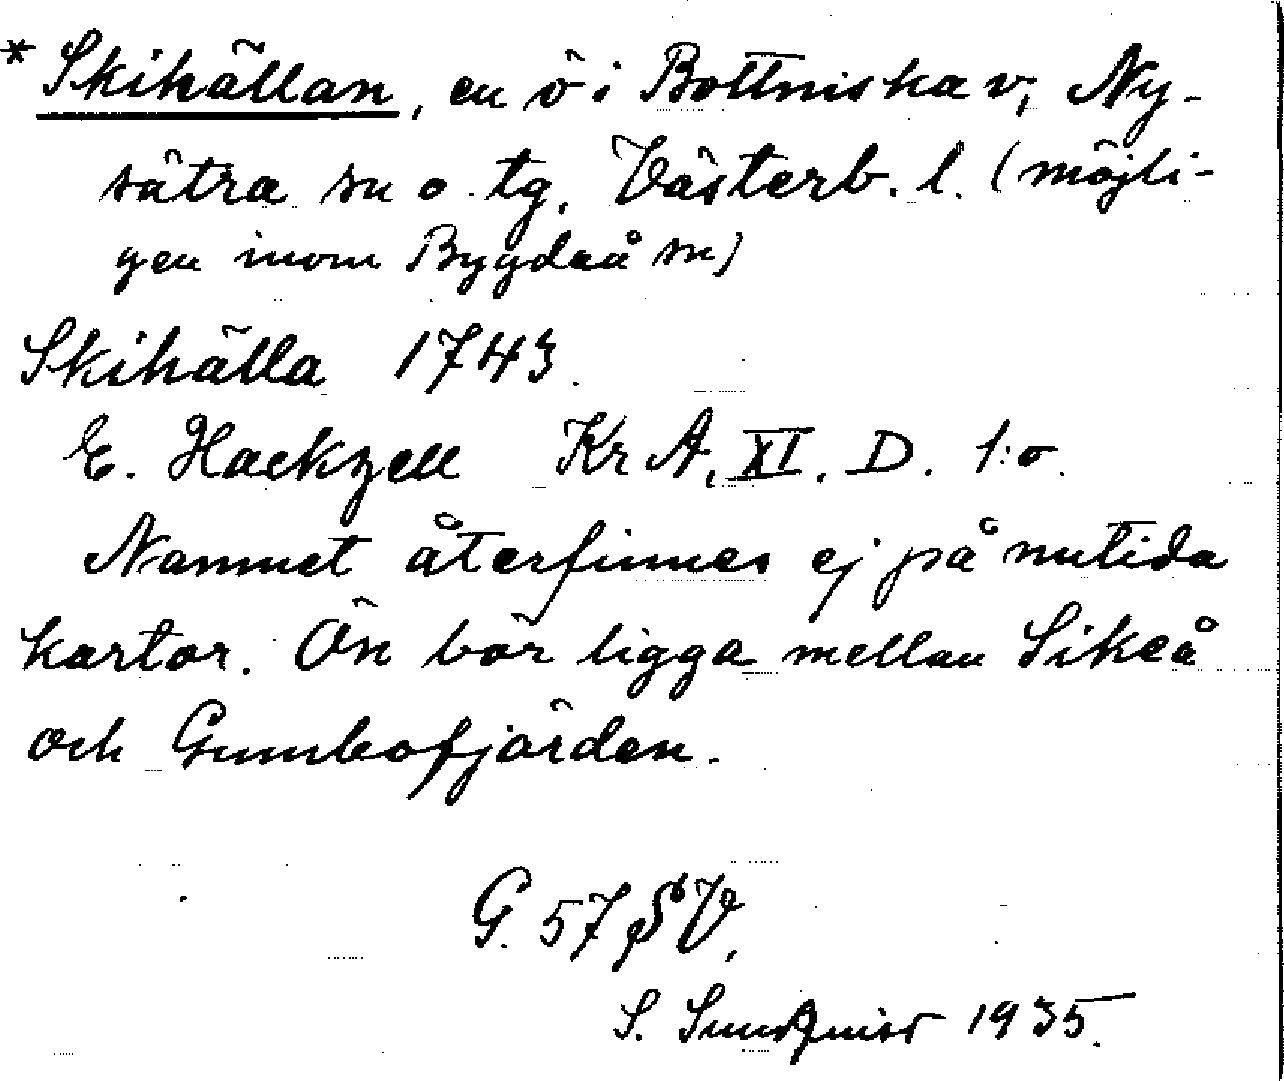 * Skihällan, en ö i Bottniska v, Ny-
sätra sn o. tg, Västerb. l. (möjli-
gen inom Bygdeå sn)
Skihälla 1743.
E. Hackzell Kr A, XI. D. 1:o.
Namnet återfinnes ej på nutida
kartor. Ön bör ligga mellan Sikeå
och Gumbofjärden.
G. 57 SV,
S. Sundquist 1935.